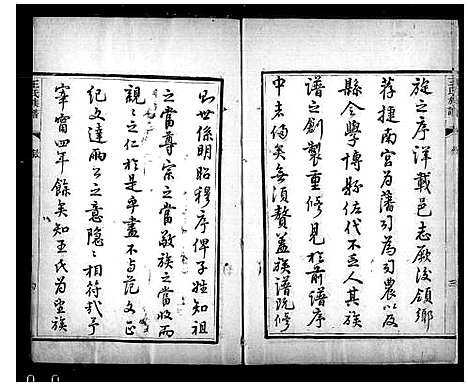 旋之序洋載邑志厥後領鄉
荐捷南宮为藩司为司農以及
縣令學博縣佐代不乏人其族
譜之創製重修見於前譜序
中者備矣無須贅蓋族譜既修
則世係明昭穆序俾子姓知祖
之當尊宗之當敬族之當收而
親之之仁於是乎盡不与范文正
紀文達兩公之意隱隱相符哉予
宰甯四年餘矣知王氏为望族
王氏族譜
序
三
王氏族譜